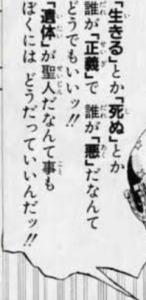 「生きる」とか「死ぬ」とか
誰が「正義」で 誰が「悪」だなんて
どうでもいいッ!!
「遺体」が聖人だなんて事も
ぼくには どうだっていいんだッ!!